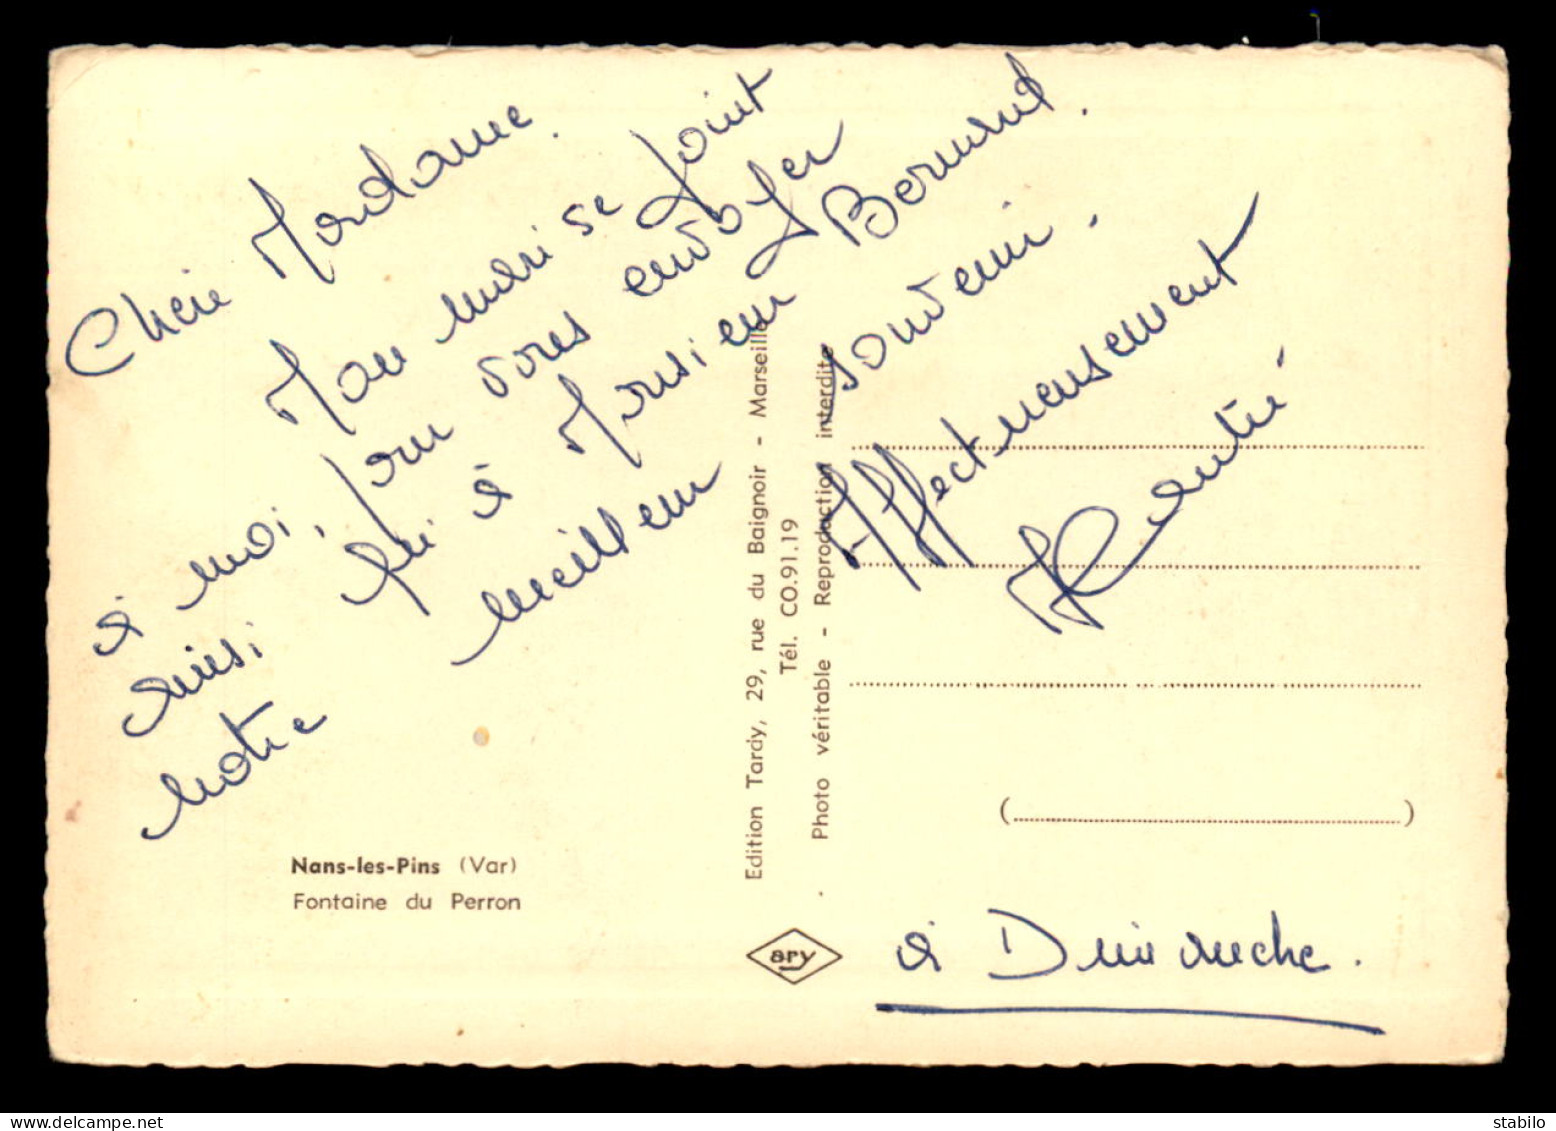 Chère Madame.
Mon mari se joint
à moi, pour vous envoyer
ainsi qu'à Monsieur
notre meilleur souvenir.
Affectueusement
à Dimanche.
Nans-les-Pins (Var)
Fontaine du Perron
Edition Tardy, 29, rue du Baignoir - Marseille
Tél. CO.91.19
Photo véritable - Reproduction interdite
ary
(          )
delcampe.net
stabilo